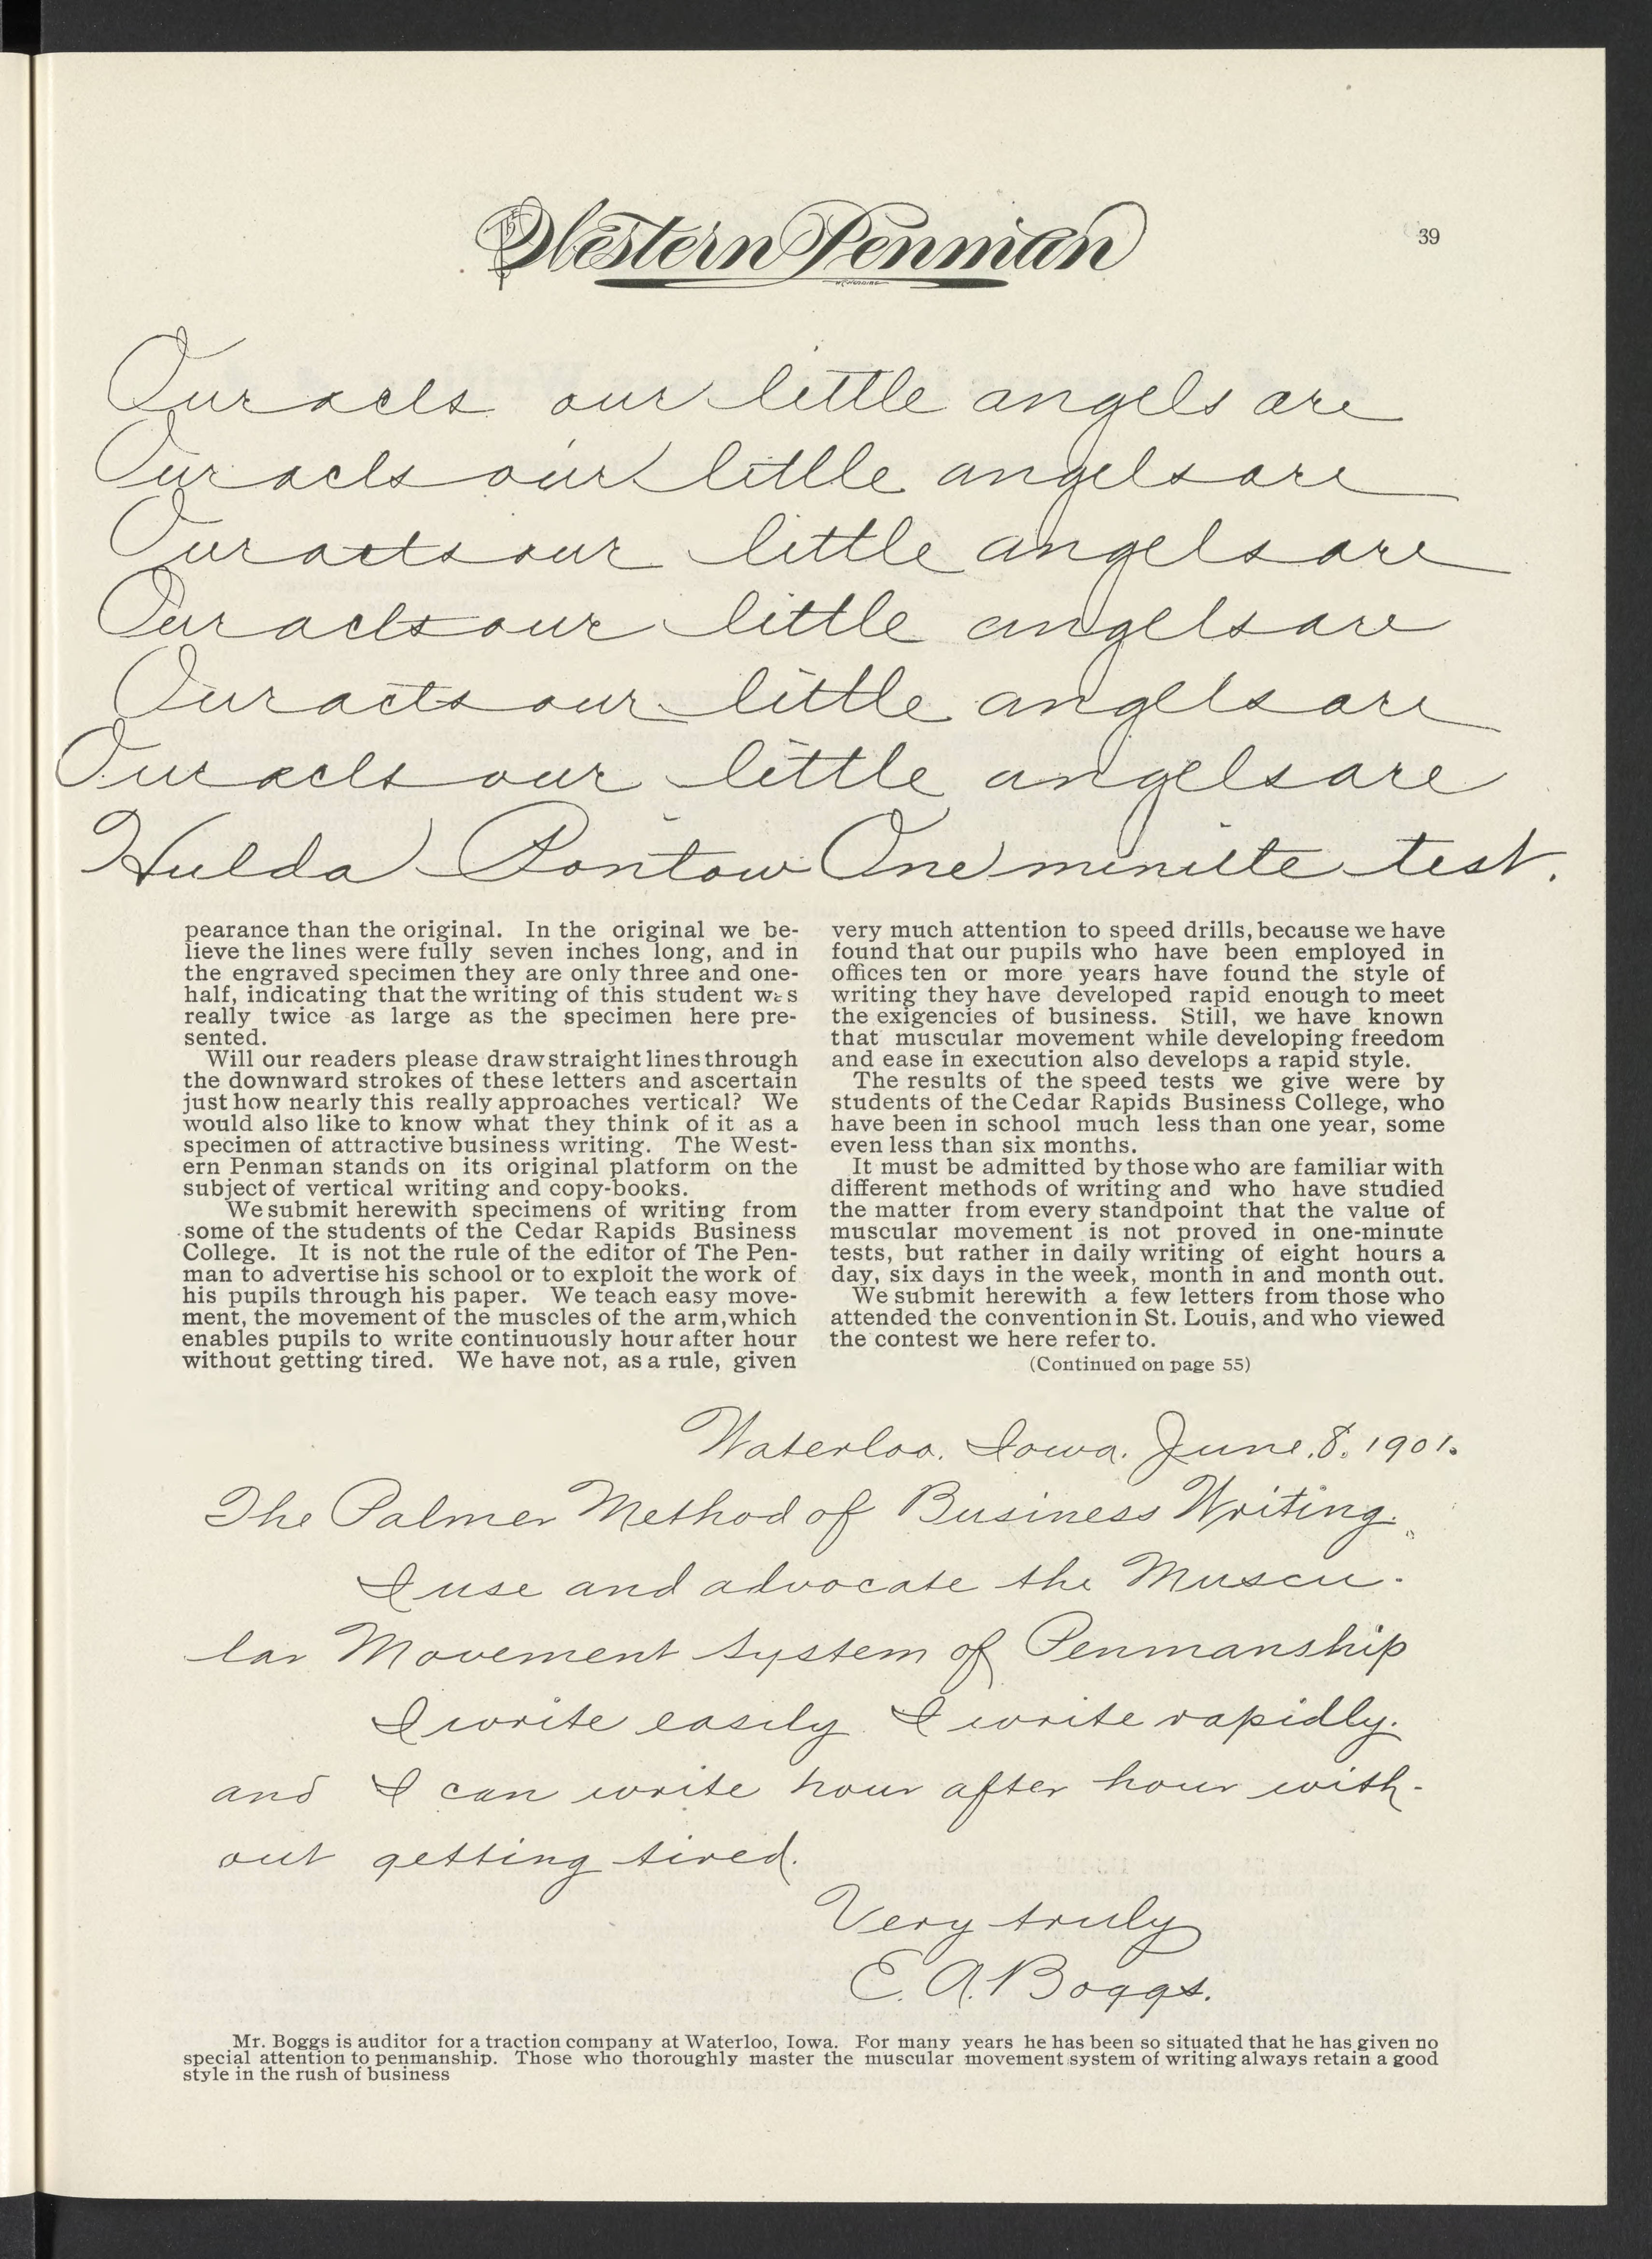 Western Penman
39
Our acts our little angels are
Our acts our little angels are
Our acts our little angels are
Our acts our little angels are
Our acts our little angels are
Our acts our little angels are
Hulda Pontow One minute test.
pearance than the original. In the original we be-
lieve the lines were fully seven inches long, and in
the engraved specimen they are only three and one-
half, indicating that the writing of this student was
really twice as large as the specimen here pre-
sented.
Will our readers please draw straight lines through
the downward strokes of these letters and ascertain
just how nearly this really approaches vertical? We
would also like to know what they think of it as a
specimen of attractive business writing. The West-
ern Penman stands on its original platform on the
subject of vertical writing and copy-books.
We submit herewith specimens of writing from
some of the students of the Cedar Rapids Business
College. It is not the rule of the editor of The Pen-
man to advertise his school or to exploit the work of
his pupils through his paper. We teach easy move-
ment, the movement of the muscles of the arm, which
enables pupils to write continuously hour after hour
without getting tired. We have not, as a rule, given
very much attention to speed drills, because we have
found that our pupils who have been employed in
offices ten or more years have found the style of
writing they have developed rapid enough to meet
the exigencies of business. Still, we have known
that muscular movement while developing freedom
and ease in execution also develops a rapid style.
The results of the speed tests we give were by
students of the Cedar Rapids Business College, who
have been in school much less than one year, some
even less than six months.
It must be admitted by those who are familiar with
different methods of writing and who have studied
the matter from every standpoint that the value of
muscular movement is not proved in one-minute
tests, but rather in daily writing of eight hours a
day, six days in the week, month in and month out.
We submit herewith a few letters from those who
attended the convention in St. Louis, and who viewed
the contest we here refer to.
(Continued on page 55)
Waterloo, Iowa. June. 8. 1901.
The Palmer Method of Business Writing.
I use and advocate the Muscu-
lar Movement System of Penmanship
I write easily. I write rapidly.
and I can write hour after hour with-
out getting tired.
Very truly
E. A. Boggs.
Mr. Boggs is auditor for a traction company at Waterloo, Iowa. For many years he has been so situated that he has given no
special attention to penmanship. Those who thoroughly master the muscular movement system of writing always retain a good
style in the rush of business